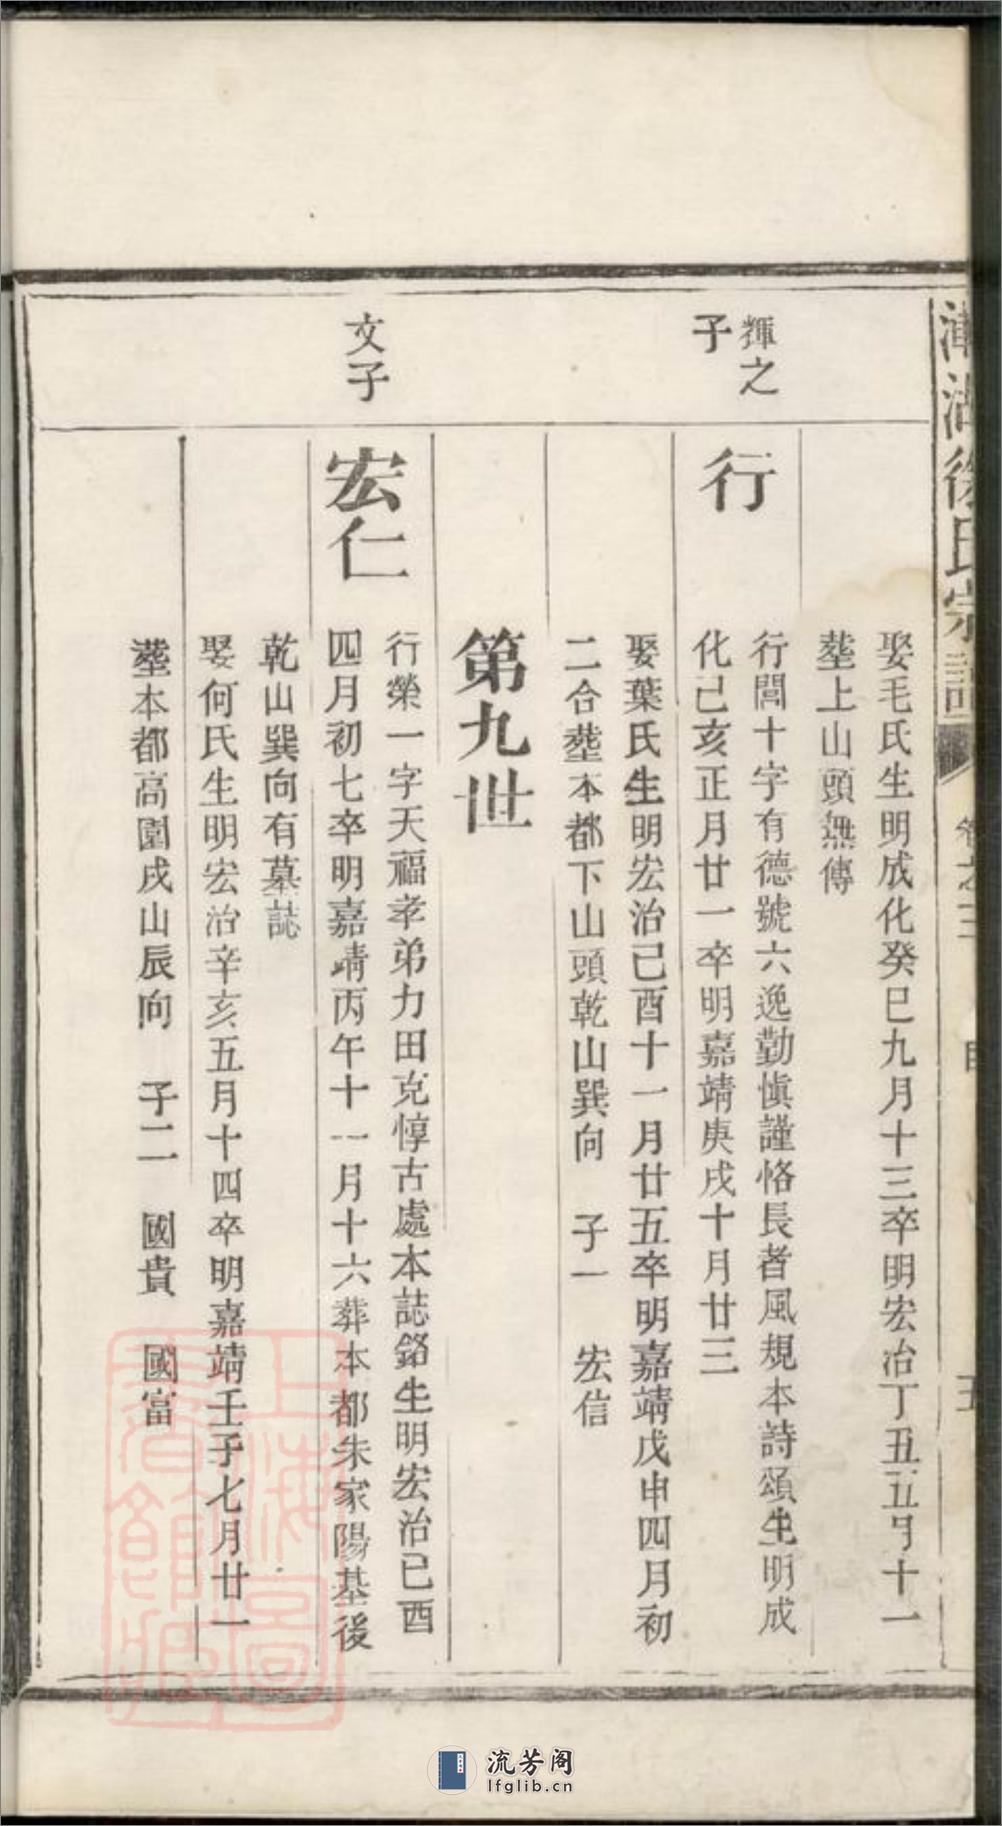 湖徐氏宗譜
娶毛氏生明成化癸巳九月十三卒明宏治丁丑五月十一
塟上山頭無傳
輝之
子
行
行閭十字有德號六逸勤慎謹恪長者風規本詩頌生明成
化己亥正月廿一卒明嘉靖庚戌十月廿三
娶葉氏生明宏治己酉十一月廿五卒明嘉靖戊申四月初
二合塟本都下山頭乾山巽向 子一 宏信
第九世
文子
宏仁
行榮一字天福孝弟力田克惇古處本誌銘生明宏治己酉
四月初七卒明嘉靖丙午十一月十六葬本都朱家陽基後
乾山巽向有墓誌
娶何氏生明宏治辛亥五月十四卒明嘉靖壬子七月廿一
塟本都高園戌山辰向 子二 國貴 國富
上海圖書館藏
流芳阁
lfglib.cn